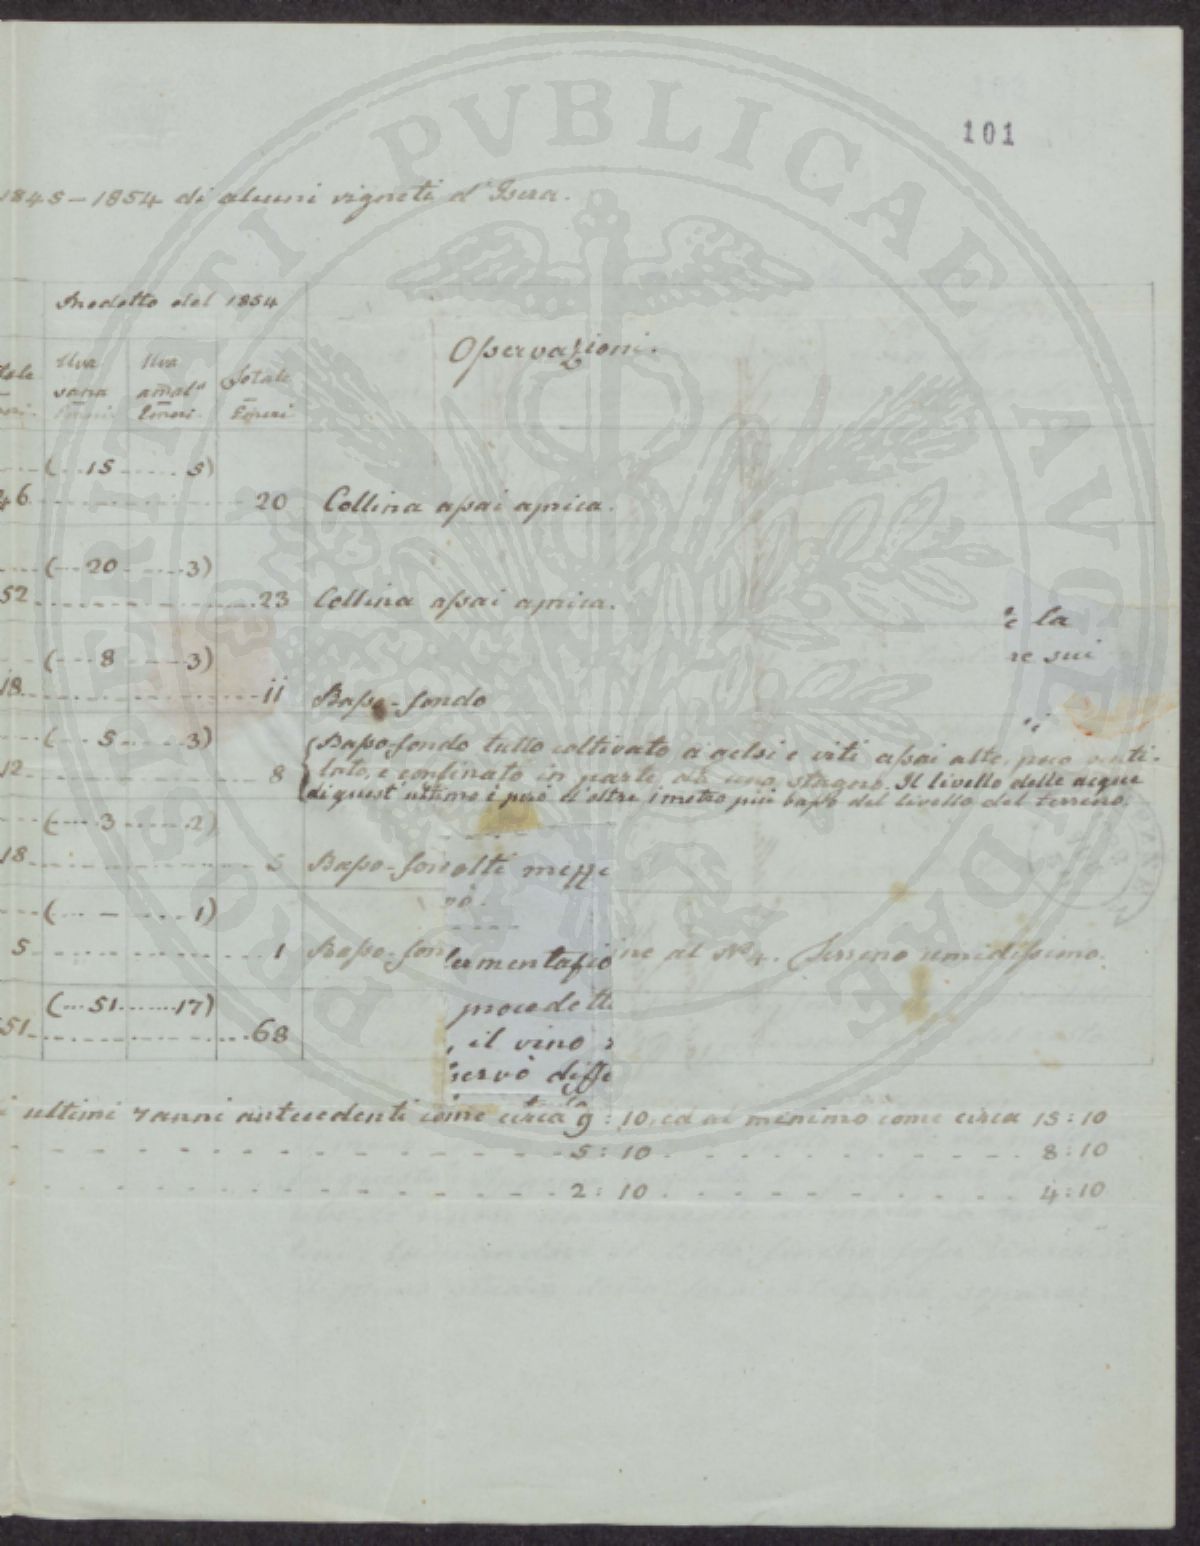 101
1848-1854 di alcuni vigneti d'Isera.
Prodotto del 1854
Osservazioni.
Uva Uva Totale
sana amal.ᵃ
Emeri. Emeri. Emeri
(---15-----5)
46 ---------- 20 Collina assai aprica.
(---20-----3)
52 ---------- 23 Collina assai aprica.
è la
(---8-----3)
re sui
18 ---------- 11 Basso-fondo
(---5-----3)
Basso-fondo tutto coltivato a gelsi e viti assai alte, poco venti-
12 ---------- 8 lato, e confinato in parte da uno stagno. Il livello delle acque
di quest' ultimo è però d'oltre 1 metro più basso del livello del terreno.
(---3-----2)
18 ---------- 5 Basso-fon olti mezze
vò.
(---–-----1)
5 ---------- 1 Basso-fon ine al N° 4. Terreno umidissimo.
fermentazio
(---51-----17)
procedett
51 ---------- 68
, il vino
servò diffe
i ultimi 7 anni antecedenti come circa 9:10, ed al minimo come circa 15:10
- - - - - 5:10 - - - - - 8:10
- - - - - 2:10 - - - - - 4:10
PROSPERITATI PVBLICAE AVGENDAE